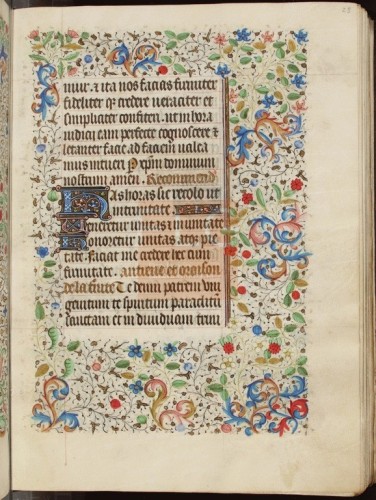 mur. et ita nos facias firmiter
fideliter q̄ credere veraciter et
simpliciter confiteri. ut in hora
iudicij tam perfecte cognoscere et
letanter facie ad faciem valea
mus intueri P xp̄m dominum
nostrum amen. Recommend.
Has horas sic recolo ut
in trinitate.
veneretur unitas in unitate
Honoretur unitas atq̨ pie
tate. faciat me credere hec cum
firmitate. antienne et oronson
de la trite Te deum patrem vni
genitum te spiritum paraclitū
sanctam et indiuiduam trini